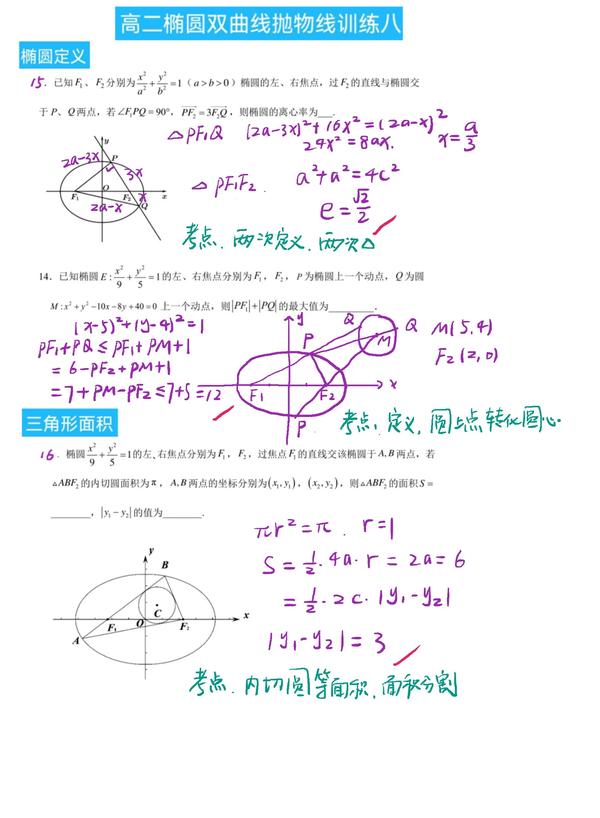 高二椭圆双曲线抛物线训练八
椭圆定义
15. 已知F₁、F₂分别为x²/a²+y²/b²=1(a>b>0)椭圆的左、右焦点，过F₂的直线与椭圆交
于P、Q两点，若∠F₁PQ=90°，PF₂=3F₂Q，则椭圆的离心率为___.
△PF₁Q (2a-3x)²+16x²=(2a-x)²
24x²=8ax. x=a/3
△PF₁F₂. a²+a²=4c²
e=√2/2
考点. 两次定义. 两次△
y
2a-3x
P
3x
O
F₁
F₂
x
x
2a-x
Q
14．已知椭圆E:x²/9+y²/5=1的左、右焦点分别为F₁，F₂，P为椭圆上一个动点，Q为圆
M:x²+y²-10x-8y+40=0上一个动点，则|PF₁|+|PQ|的最大值为________.
(x-5)²+(y-4)²=1
PF₁+PQ≤PF₁+PM+1
=6-PF₂+PM+1
=7+PM-PF₂≤7+5=12
y
Q
Q
P
M
F₁
F₂
x
P
M(5,4)
F₂(2,0)
考点，定义，圆上点转化圆心
三角形面积
16．椭圆x²/9+y²/5=1的左、右焦点分别为F₁，F₂，过焦点F₁的直线交该椭圆于A,B两点，若
△ABF₂的内切圆面积为π，A,B两点的坐标分别为(x₁,y₁)，(x₂,y₂)，则△ABF₂的面积S=
________，|y₁-y₂|的值为________.
πr²=π. r=1
S=1/2·4a·r=2a=6
=1/2·2c·|y₁-y₂|
|y₁-y₂|=3
y
B
C
F₁
O
F₂
x
A
考点. 内切圆等面积. 面积分割